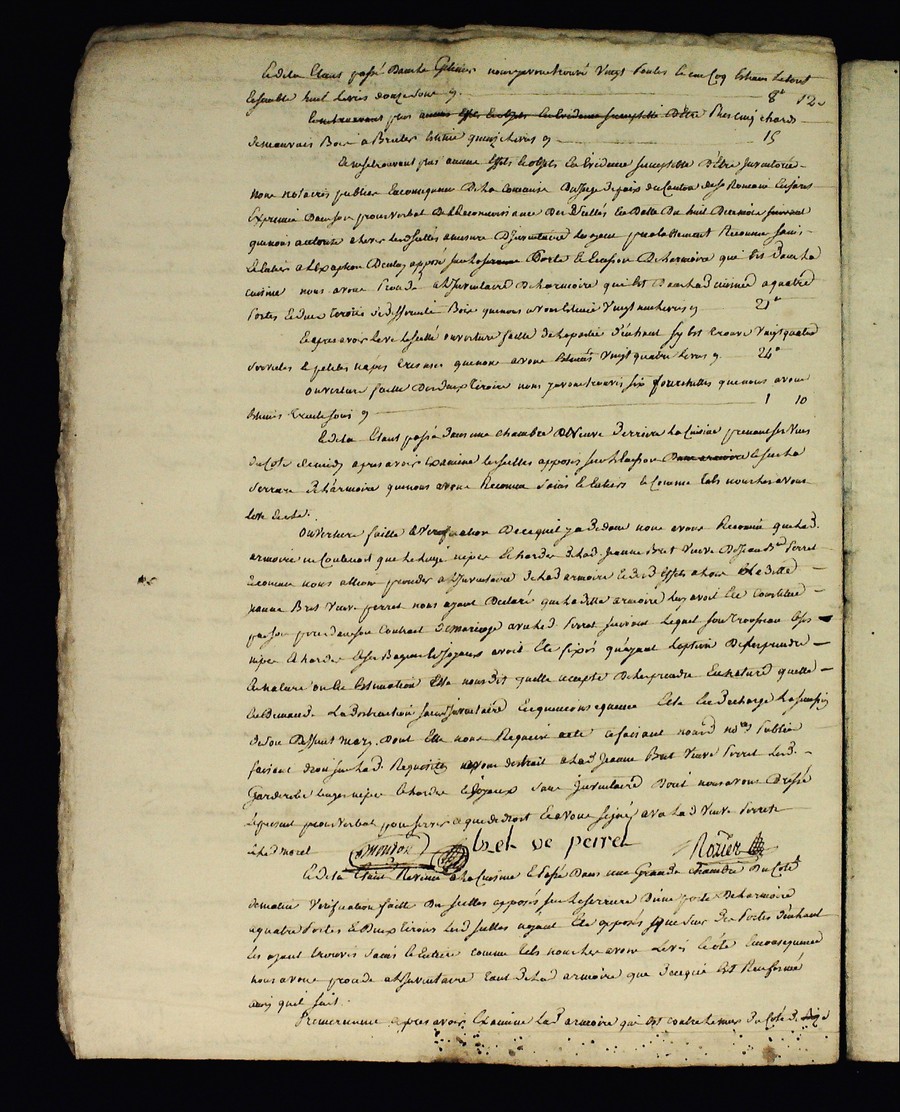 Et de la Etant passé dans le Gelinier nous y avons trouvé Vingt Poules et un Coq Estimés le tout
Ensemble huit Livres douze Sous 8# 12s
Ne se trouvant plus aucuns Effets et objets En Evidence susceptible D'être chards
de mauvais Bois a Bruler Estimé quinze livres 15
Ne se trouvant plus aucuns Effets et objets En Evidence susceptible d'être Inventorié
Nous notaires publics En consequence De la Commission Du Juge de paix du Canton de St Romain
Exprimée Dans son proces Verbal De Reconnoissance Des Scellés En Datte Du huit Decembre
qui nous autorise a lever les dits scellés a mesure D'Inventaire Les ayant prealablement Reconnu Sains
et Entiers a l'Exception De celuy apposé sur la Porte de l'armoire qui Est Dans la
cuisine nous avons Procédé a l'Inventaire De l'armoire qui Est Dans la d. cuisine a quatre
Portes Et deux tiroirs de differents Bois que nous avons Estimé Vingt une livres 21#
Et apres avoir levé le scellé ouverture faitte de la partie d'enhaut Sy Est trouvé Vingt quatre
Serviettes Et petites napes que nous avons Estimés Vingt quatre livres 24#
Ouverture faitte Des deux tiroirs nous y avons trouvés six fourchettes que nous avons
Estimés trente sous 1 10
Et de la Etant passé dans une chambre derriere la Cuisine prenant ses Vues
du Coté de midy apres avoir Examiné les scellés apposés sur la
serrure De l'armoire que nous avons Reconnu Sains Et Entiers Et Comme tels nous les avons
Levé
Ouverture faitte Et Verification De ce qui y a dedans nous avons Reconnu que la d.
armoire ne Contenoit que le linge nipes Et hardes de la d. Jeanne Bret Veuve De Jean Perret
Et comme nous allions proceder a l'Inventaire de la d. armoire Et des d. Effets a la ditte
Jeanne Bret Veuve perret nous ayant Declaré que la ditte armoire luy avoit Eté Constituée
par son pere dans son Contrat de mariage avec le d. Perret suivant lequel son trousseau
nipes Et hardes Et ses Bagues Et Joyaux avoit Eté fixés qu'ayant l'option De les prendre
En nature ou En Estimation Elle nous dit quelle accepte De les prendre En nature quelle
En Demande La distraction sans Inventaire En consequence Et En decharge
de son Deffunt mary. Dont Elle nous Requiert acte Ce faisant nous d. notaires Publics
faisant droit sur la d. Requisition avons distrait a la d. Jeanne Bret Veuve Perret Les d.
Garderobe linges nipes Et hardes Et Joyaux Sans Inventaire Dont nous avons Dressé
Le present proces verbal pour servir a ce que de droit Et avons signé avec la d. Veuve Perret
bret ve perret
Et de la Etant Revenu a la Cuisine Et Passé Dans une Grande chambre Du Coté
de matin Verification faitte Du scellés apposés sur la serrure D'une porte De l'armoire
a quatre Portes Et Deux tirroirs Les d. scellés n'ayant Eté apposés que sur Des Portes d'enhaut
Les ayant trouvés Sains Et Entiers comme tels nous les avons Levés Et oté En consequence
nous avons procedé a l'Inventaire tant de la d. armoire que De ce qui Est Renfermé
ainsy quil suit.
Premierement apres avoir Examiné la d. armoire qui Est contre le mur Du Coté